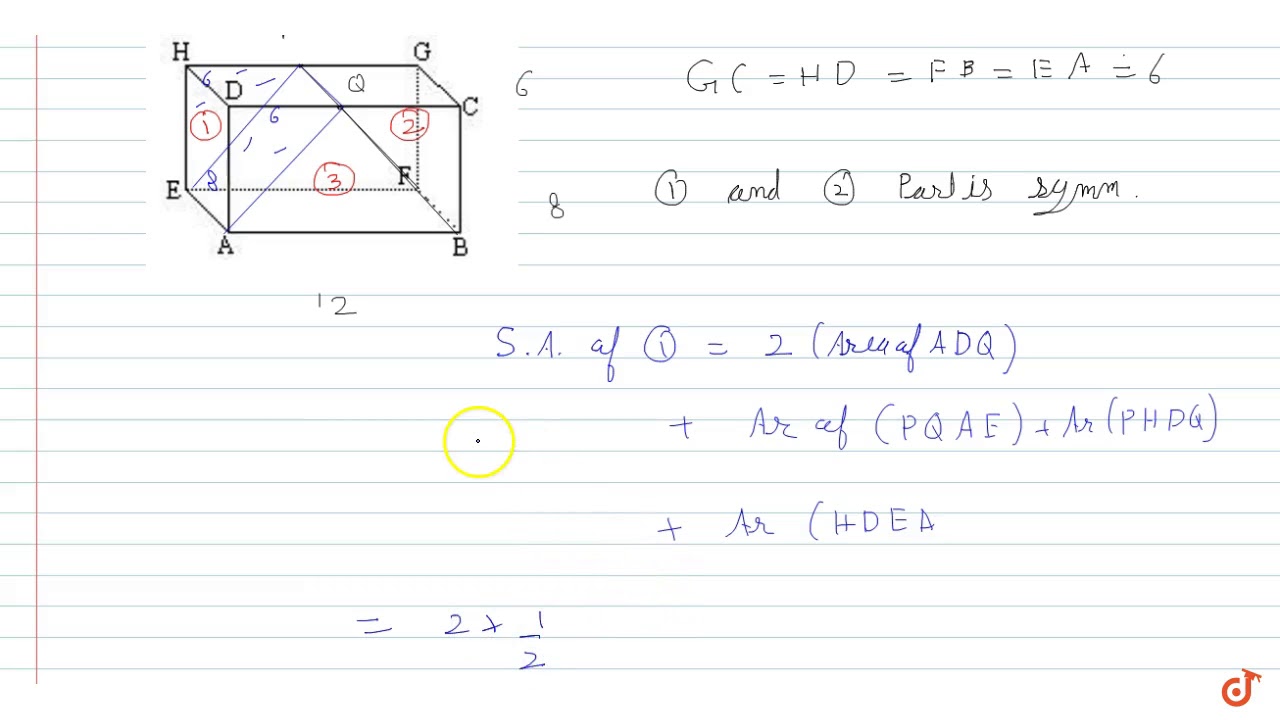 H G
6 Q 6 GC = HD = FB = EA = 6
D C
1 6 2
E 8 3 F 8 1 and 2 Part is symm.
A B
12
S.A. of 1 = 2 (Area of ADQ)
+ Ar of (PQAE) + Ar (PHDQ)
+ Ar (HDEA
= 2 × 1/2